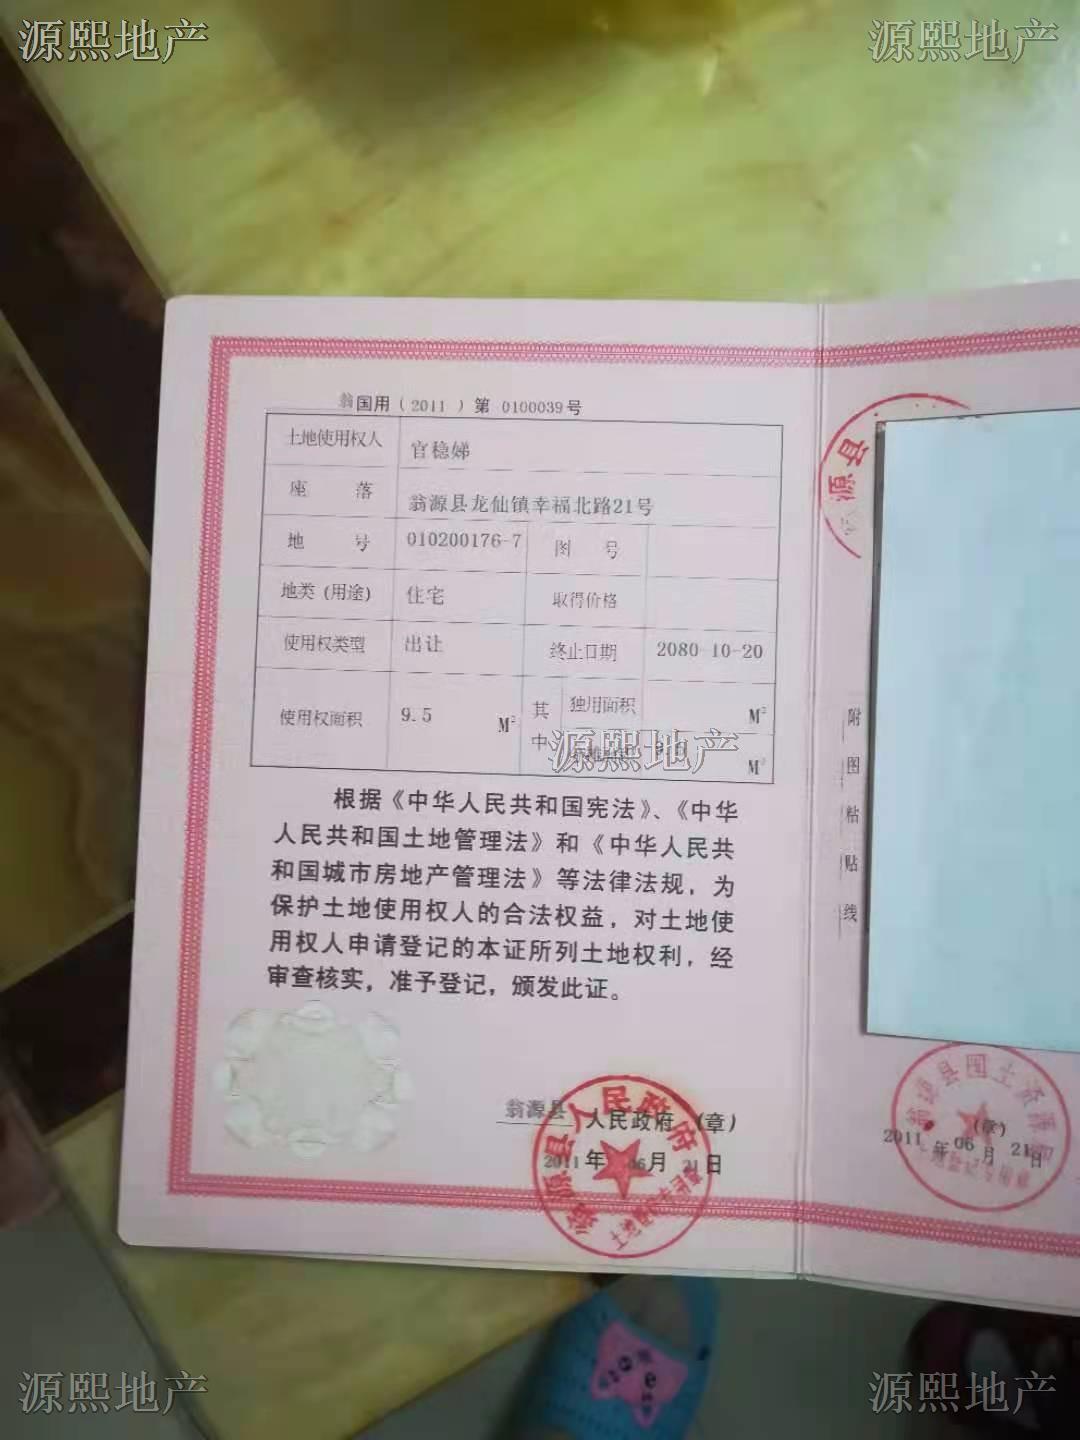 源熙地产
源熙地产
翁国用（2011）第 0100039号
土地使用权人 官稳娣
座 落 翁源县龙仙镇幸福北路21号
地 号 010200176-7 图 号
地类（用途） 住宅 取得价格
使用权类型 出让 终止日期 2080-10-20
使用权面积 9.5 M² 其中 独用面积 M²
M²
源熙地产
根据《中华人民共和国宪法》、《中华
人民共和国土地管理法》和《中华人民共
和国城市房地产管理法》等法律法规，为
保护土地使用权人的合法权益，对土地使
用权人申请登记的本证所列土地权利，经
审查核实，准予登记，颁发此证。
翁源县 人民政府（章）
2011 年 06 月 21 日
翁源县人民政府
源县
附图粘贴线
翁源县国土资源局
（章）
2011 年 06 月 21 日
源熙地产
源熙地产